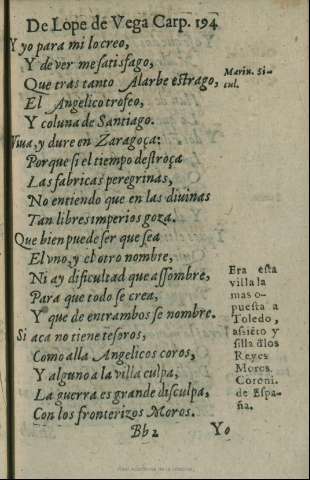 De Lope de Vega Carp. 194
Y yo para mi lo creo,
Y de ver me satisfago,
Que tras tanto Alarbe estrago,
El Angelico trofeo,
Y coluna de Santiago.
Viua, y dure en Zaragoça:
Porque si el tiempo destroça
Las fabricas peregrinas,
No entiendo que en las diuinas
Tan libres imperios goza.
Que bien puede ser que sea
El vno, y el otro nombre,
Ni ay dificultad que assombre,
Para que todo se crea,
Y que de entrambos se nombre.
Si aca no tiene tesoros,
Como alla Angelicos coros,
Y alguno a la villa culpa,
La guerra es grande disculpa,
Con los fronterizos Moros.
Marin. Si-
cul.
Era esta
villa la
mas o-
puesta a
Toledo,
assiẽto y
silla d̃los
Reyes
Moros.
Coroni.
de Espa-
ña.
Bb 2 Yo